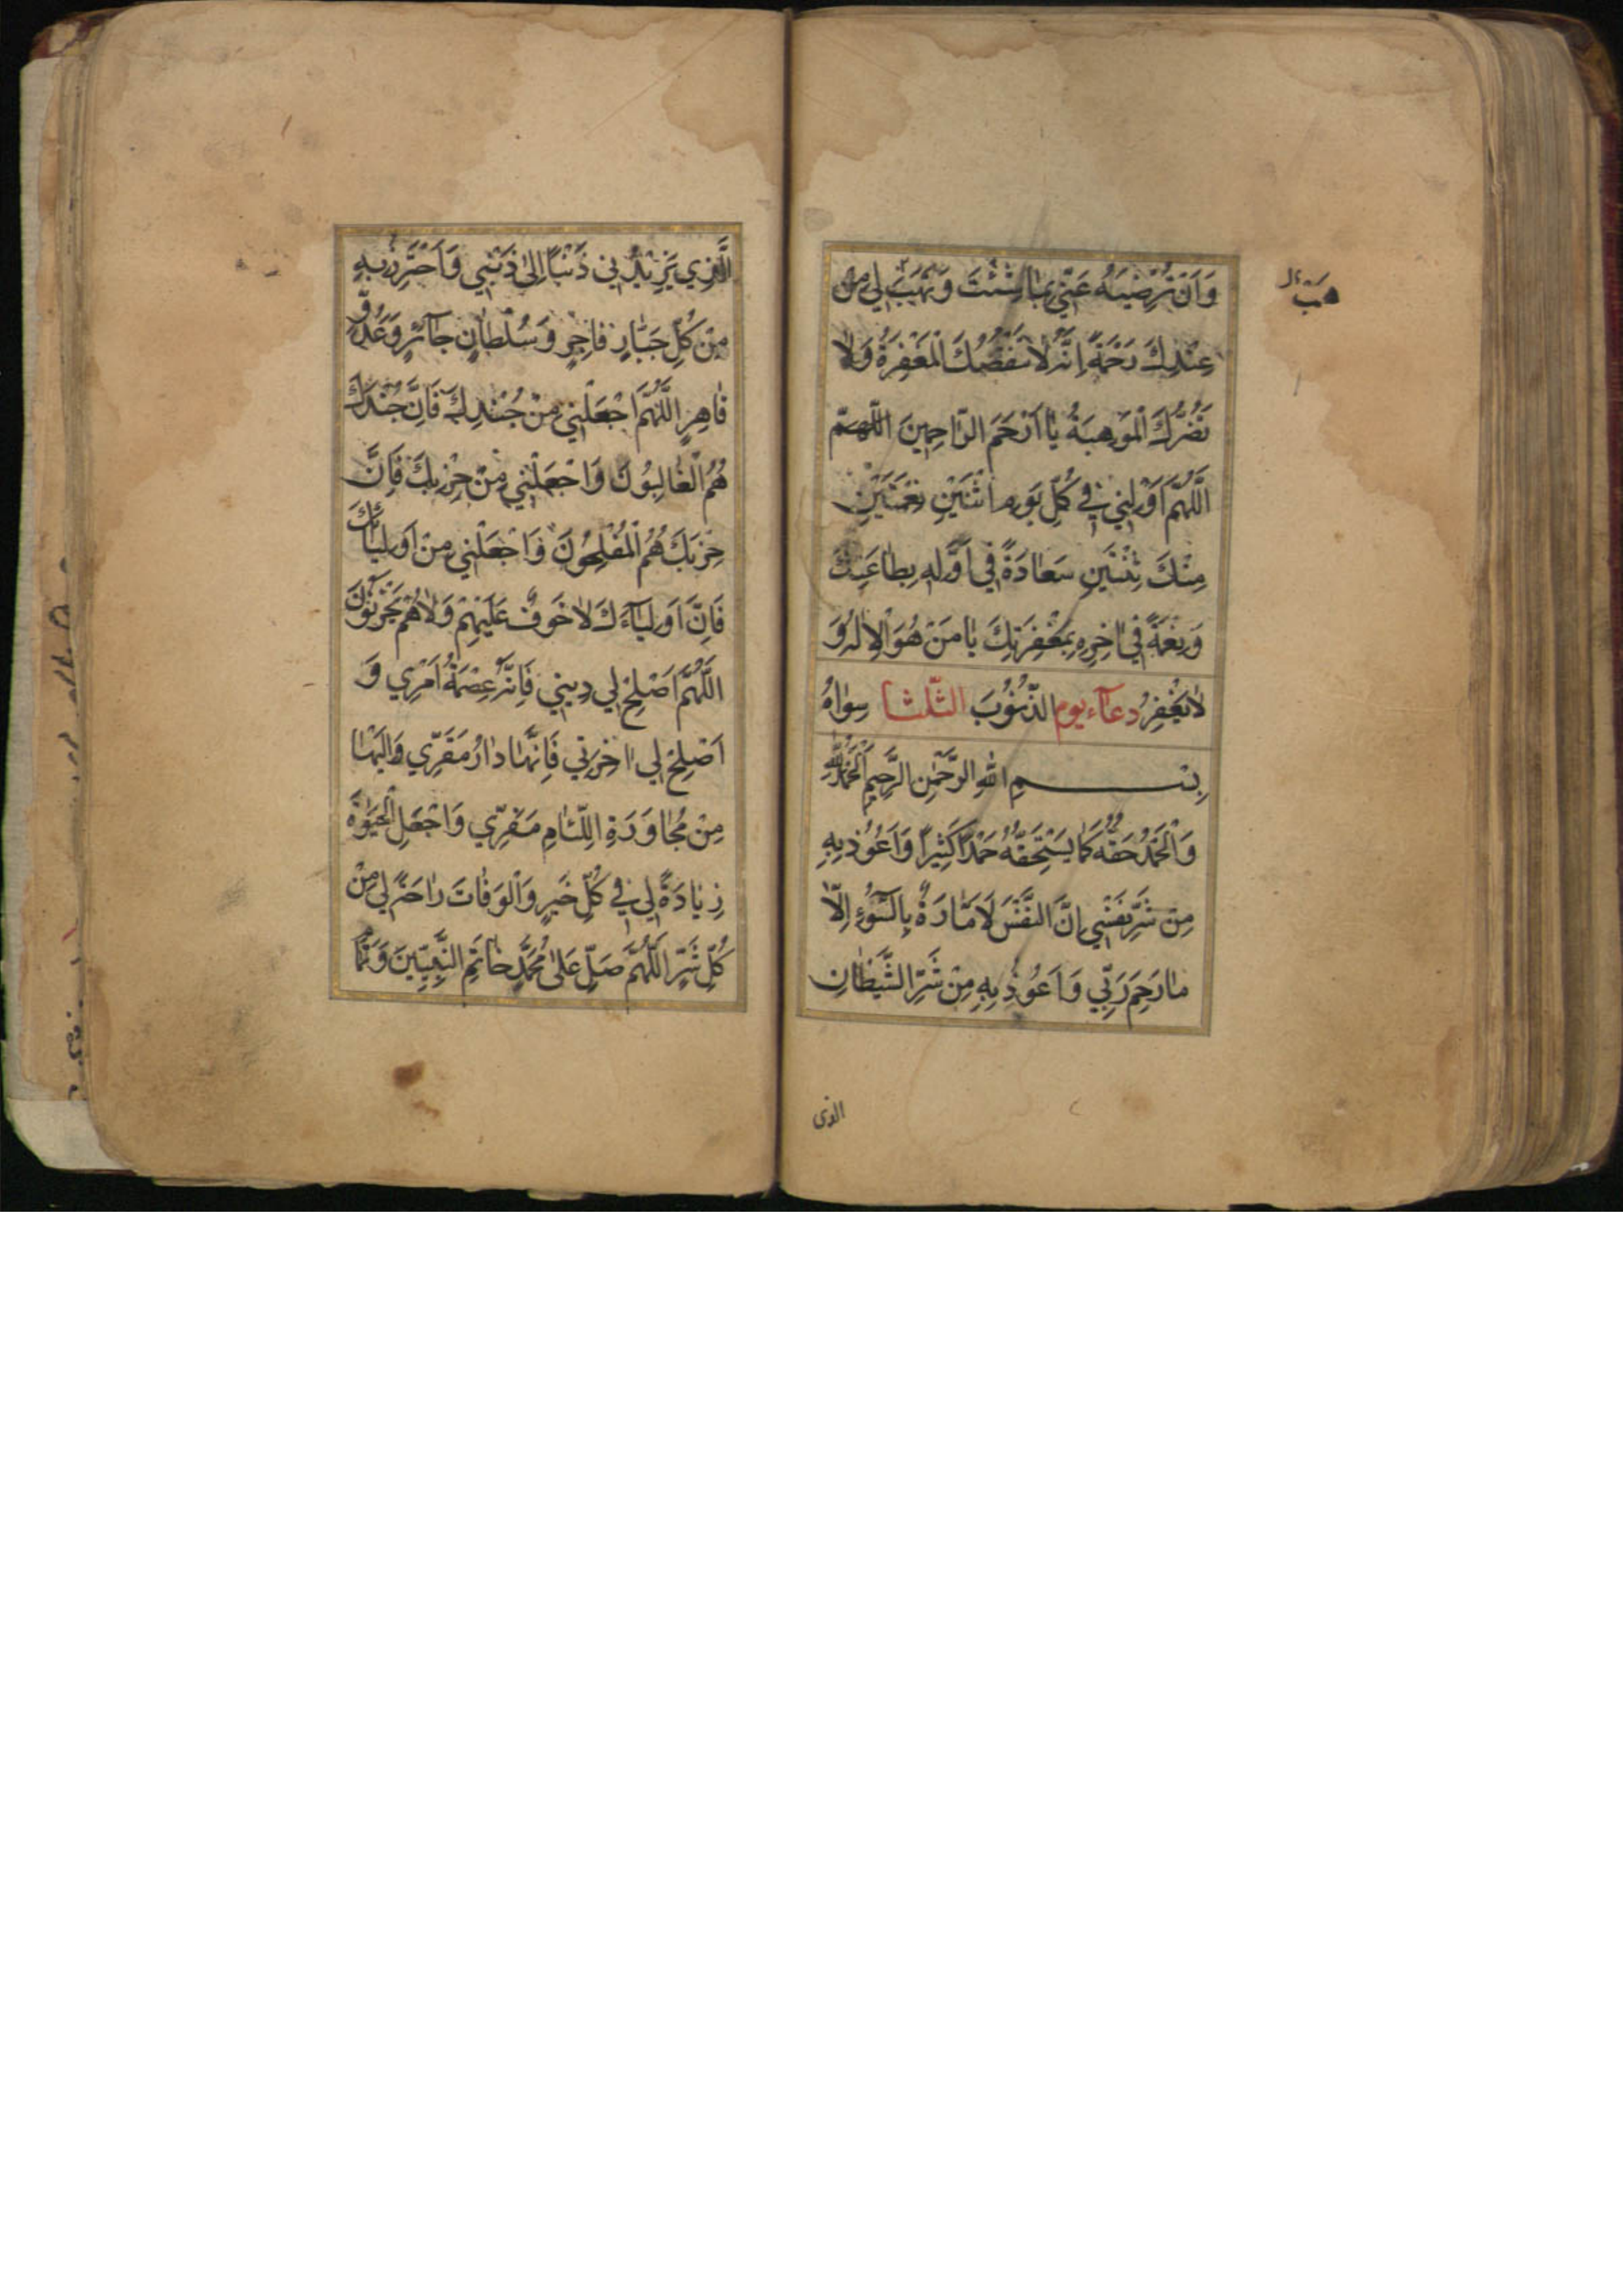 وَاَنْ تُرْضِيَهُ عَنّي بِمٰا شِئْتَ وَتَهَبَ لي مِنْ
هَبْ
عِنْدِكَ رَحْمَةً اِنَّهُ لاٰ تَنْقُصُكَ الْمَغْفِرَةُ وَلاٰ
تَضُرُّكَ الْمَوْهِبَةُ يٰا اَرْحَمَ الرّٰاحِمينَ اللّهمّ
اَللّٰهُمَّ اَوْلِني في كُلِّ يَوْمِ اثْنَيْنِ نِعْمَتَيْنِ
مِنْكَ ثِنْتَيْنِ سَعٰادَةً في اَوَّلِهِ بِطٰاعَتِكَ
وَنِعْمَةً في اٰخِرِهِ بِمَغْفِرَتِكَ يٰا مَنْ هُوَ الْاِلٰهُ وَ
لاٰ يَغْفِرُ دعآء يوم الذُّنُوبَ الثّلثا سِوٰاهُ
بِسْمِ اللّٰهِ الرَّحْمٰنِ الرَّحيمِ اَلْحَمْدُ لِلّٰهِ
وَالْحَمْدُ حَقُّهُ كَمٰا يَسْتَحِقُّهُ حَمْداً كَثيراً وَاَعُوذُ بِهِ
مِنْ شَرِّ نَفْسي اِنَّ النَّفْسَ لَاَمّٰارَةٌ بِالسُّوۤءِ اِلّاٰ
مٰا رَحِمَ رَبّي وَاَعُوذُ بِهِ مِنْ شَرِّ الشَّيْطٰانِ
الذى
اَلَّذي يَزيدُني ذَنْباً اِلىٰ ذَنْبي وَاَحْتَرِزُ بِهِ
مِنْ كُلِّ جَبّٰارٍ فٰاجِرٍ وَسُلْطٰانٍ جٰآئِرٍ وَعَدُوٍّ
قٰاهِرٍ اَللّٰهُمَّ اجْعَلْني مِنْ جُنْدِكَ فَاِنَّ جُنْدَكَ
هُمُ الْغٰالِبُونَ وَاجْعَلْني مِنْ حِزْبِكَ فَاِنَّ
حِزْبَكَ هُمُ الْمُفْلِحُونَ وَاجْعَلْني مِنْ اَوْلِيٰآئِكَ
فَاِنَّ اَوْلِيٰآءَكَ لاٰ خَوْفٌ عَلَيْهِمْ وَلاٰ هُمْ يَحْزَنُونَ
اَللّٰهُمَّ اَصْلِحْ لي ديني فَاِنَّهُ عِصْمَةُ اَمْري وَ
اَصْلِحْ لي اٰخِرَتي فَاِنَّهٰا دٰارُ مَقَرّي وَاِلَيْهٰا
مِنْ مُجٰاوَرَةِ اللِّئٰامِ مَفَرّي وَاجْعَلِ الْحَيٰوةَ
زِيٰادَةً لي في كُلِّ خَيْرٍ وَالْوَفٰاتَ رٰاحَةً لي مِنْ
كُلِّ شَرٍّ اَللّٰهُمَّ صَلِّ عَلىٰ مُحَمَّدٍ خٰاتَمِ النَّبِيّينَ وَتَمٰا